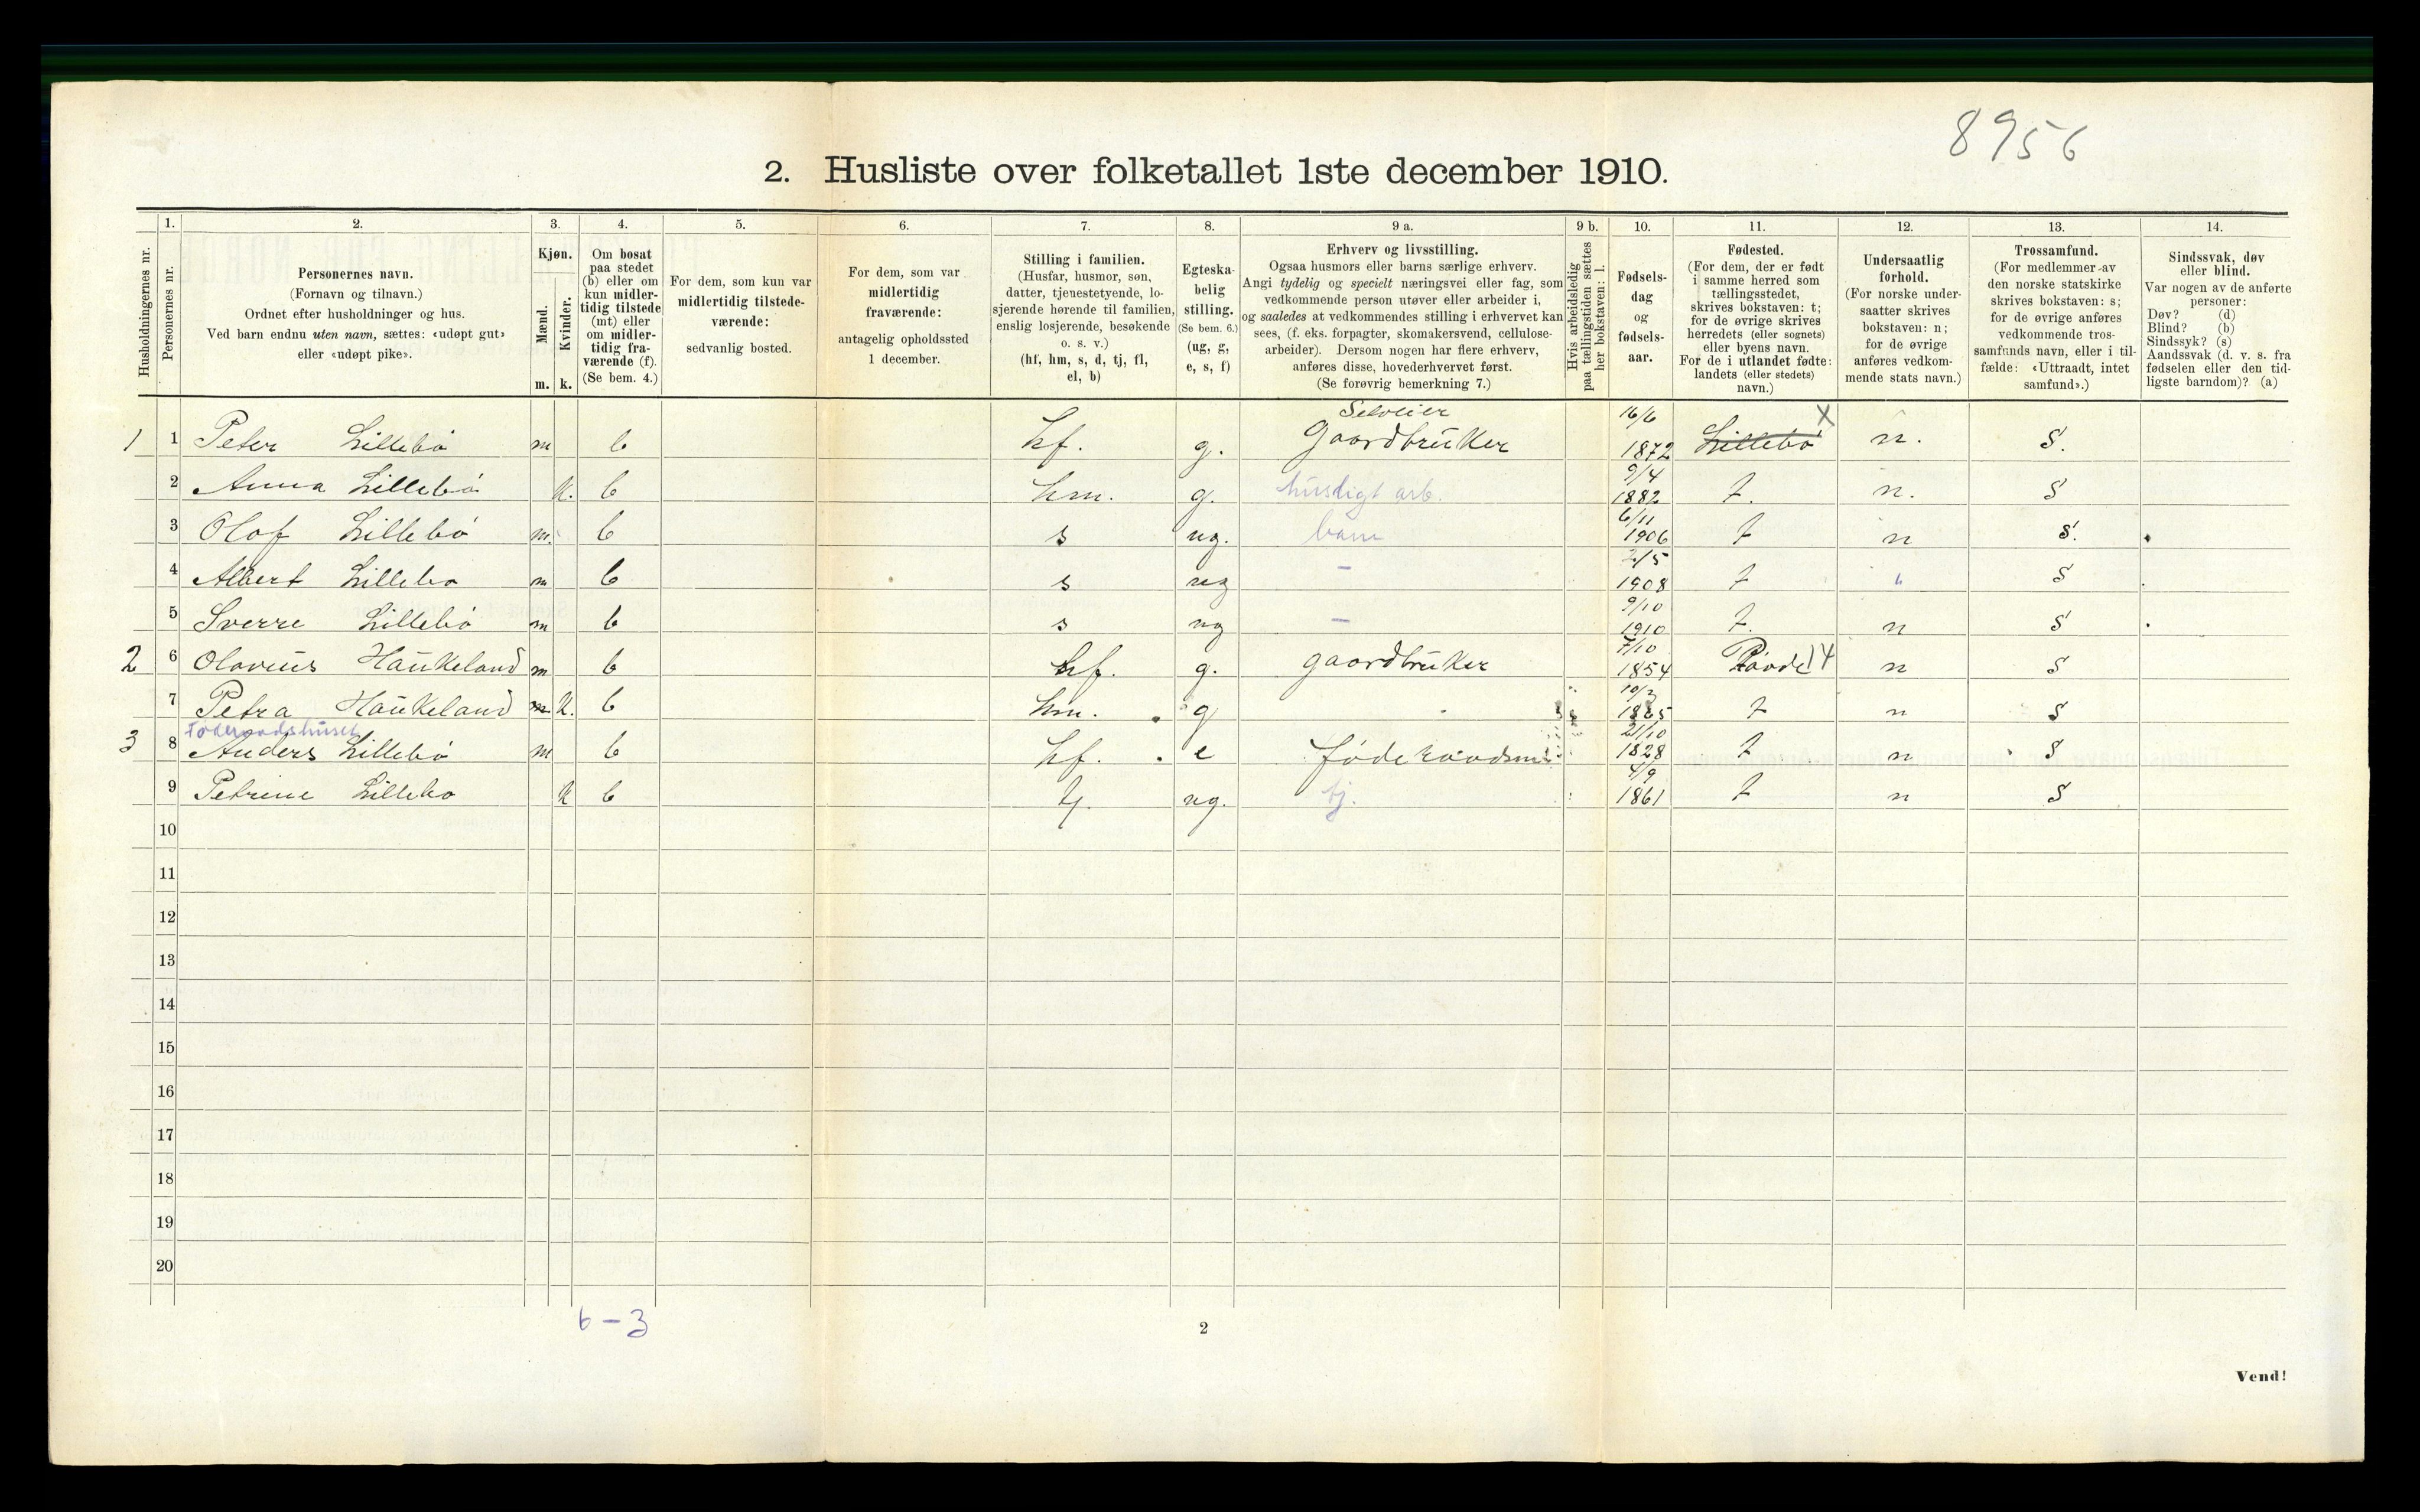 8956
2. Husliste over folketallet 1ste december 1910.
Husholdningernes nr.
1.
Personernes nr.
2.
Personernes navn.
(Fornavn og tilnavn.)
Ordnet efter husholdninger og hus.
Ved barn endnu uten navn, sættes: «udøpt gut»
eller «udøpt pike».
3.
Kjøn.
Mænd.
m.
Kvinder.
k.
4.
Om bosat
paa stedet
(b) eller om
kun midler-
tidig tilstede
(mt) eller
om midler-
tidig fra-
værende (f).
(Se bem. 4.)
5.
For dem, som kun var
midlertidig tilstede-
værende:
sedvanlig bosted.
6.
For dem, som var
midlertidig
fraværende:
antagelig opholdssted
1 december.
7.
Stilling i familien.
(Husfar, husmor, søn,
datter, tjenestetyende, lo-
sjerende hørende til familien,
enslig losjerende, besøkende
o. s. v.)
(hf, hm, s, d, tj, fl,
el, b)
8.
Egteska-
belig
stilling.
(Se bem. 6.)
(ug, g,
e, s, f)
9 a.
Erhverv og livsstilling.
Ogsaa husmors eller barns særlige erhverv.
Angi tydelig og specielt næringsvei eller fag, som
vedkommende person utøver eller arbeider i,
og saaledes at vedkommendes stilling i erhvervet kan
sees, (f. eks. forpagter, skomakersvend, cellulose-
arbeider). Dersom nogen har flere erhverv,
anføres disse, hovederhvervet først.
(Se forøvrig bemerkning 7.)
9 b.
Hvis arbeidsledig
paa tællingstiden sættes
her bokstaven: l.
10.
Fødsels-
dag
og
fødsels-
aar.
11.
Fødested.
(For dem, der er født
i samme herred som
tællingsstedet,
skrives bokstaven: t;
for de øvrige skrives
herredets (eller sognets)
eller byens navn.
For de i utlandet fødte:
landets (eller stedets)
navn.)
12.
Undersaatlig
forhold.
(For norske under-
saatter skrives
bokstaven: n;
for de øvrige
anføres vedkom-
mende stats navn.)
13.
Trossamfund.
(For medlemmer av
den norske statskirke
skrives bokstaven: s;
for de øvrige anføres
vedkommende tros-
samfunds navn, eller i til-
fælde: «Uttraadt, intet
samfund».)
14.
Sindssvak, døv
eller blind.
Var nogen av de anførte
personer:
Døv? (d)
Blind? (b)
Sindssyk? (s)
Aandssvak (d. v. s. fra
fødselen eller den tid-
ligste barndom)? (a)
Selveier 16/6 X
1 1 Peter Lillebø m b hf. g. Gaardbruker 1872 Lillebø n. S.
2 Anna Lillebø k. b hm. g. husligt arb. 9/4 1882 t. n. S
3 Olaf Lillebø m. b s ug. barn 6/11 1906 t n S.
4 Albert Lillebø m b s ug – 2/5 1908 t " S
5 Sverre Lillebø m b s ug – 9/10 1910 t. n S
2 6 Olavius Haukeland m b hf. g. gaardbruker 7/10 1854 14 n S
7 Petra Haukeland m k. b hm. g 10/3 t n S
Føderaadshuset
3 8 Anders Lillebø m b hf. e føderaadsm 21/10 1828 t n S
9 Petrine Lillebø k b tj. ug. tj. 4/9 1861 t n S
10
11
12
13
14
15
16
17
18
19
20
6 – 3
2
Vend!